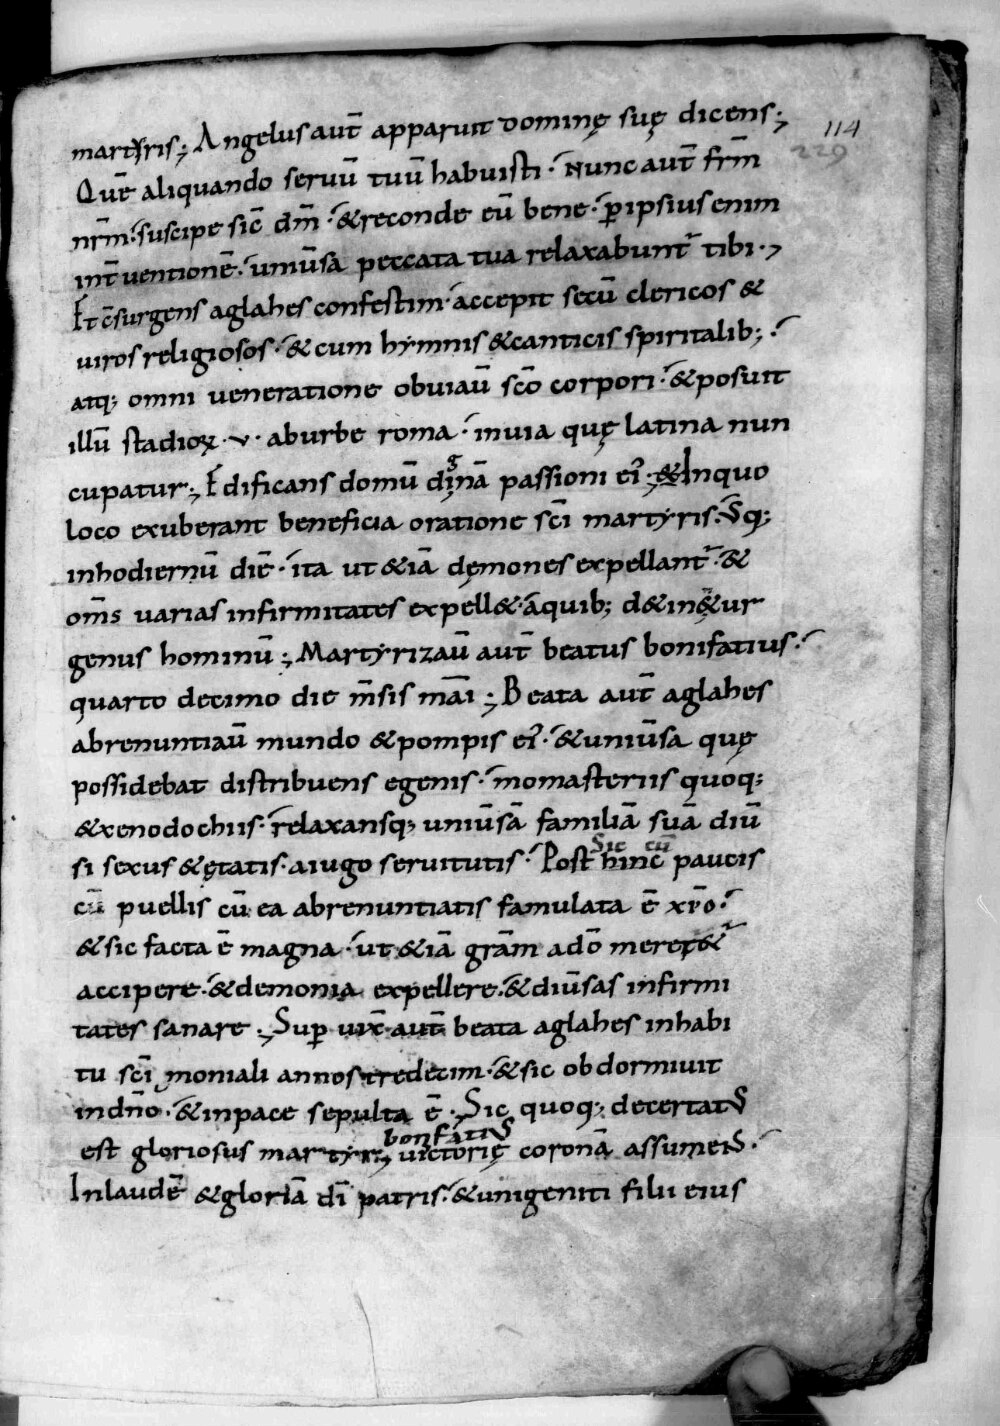 martyris; Angelus aut̄ apparuit dominę suę dicens;
114
229
Quē aliquando seruū tuū habuisti · Nunc aut̄ fr̄m
nr̄m · suscipe sic̄ dn̄m · & reconde eū bene · ꝑ ipsius enim
int̄uentionē · uniūsa peccata tua relaxabunt᷑ tibi ·,
Et c̄surgens aglahes confestim · accepit secū clericos &
uiros religiosos · & cum hymnis & canticis spiritalib; ·
atq; omni ueneratione obuiaū sc̄o corpori · & posuit
illū stadioꝝ · v · ab urbe roma · in uia quę latina nun
cupatur; Edificans domū dignā passioni ei᷒; & In quo
loco exuberant beneficia oratione sc̄i martyris · Vsq;
in hodiernū diē · ita ut & iā dęmones expellant᷑ · &
om̄s uarias infirmitates expell& · a quib; d&in&ur
genus hominū; Martyrizaū aut̄ beatus bonifatius ·
quarto decimo die m̄sis māi; Beata aut̄ aglahes
abrenuntiaū mundo & pompis ei᷒ · & uniūsa quę
possidebat distribuens egenis · momasteriis quoq;
& xenodochiis · relaxansq; uniūsā familiā suā diū
si sexus & ętatis · a iugo seruitutis · Post hinc paucis
Sic cū
cū puellis cū ea abrenuntiatis famulata ē xr̄o ·
& sic facta ē magna · ut & iā gr̄am a dō merer&᷑
accipere · & demonia expellere · & diūsas infirmi
tates sanare; Suꝑ uix̄ aut̄ beata aglahes in habi
tu sc̄i moniali annos tredecim · & sic obdormiuit
in dn̄o · & in pace sepulta ē · Sic quoq; decertat᷒
bonifati᷒
est gloriosus martyr, uictorię coronā assumens ·
In laudē & gloriā dī patris · & unigeniti filii eius